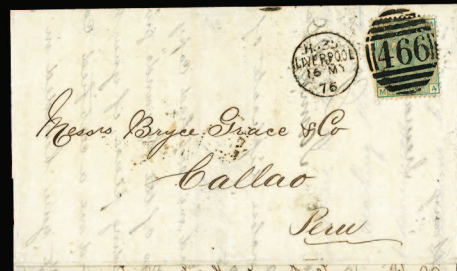 LIVERPOOL
16 MY
76
466
M
A
Messrs Bryce, Grace & Co
Callao
Peru